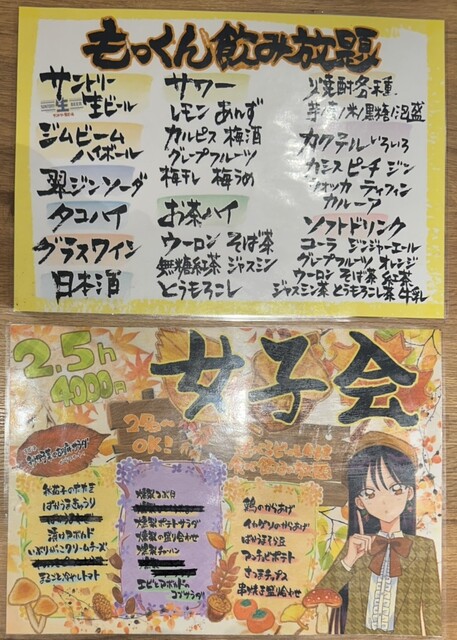 もっくん飲み放題
サントリー
生
生ビール
ジムビーム
ハイボール
翠ジンソーダ
タコハイ
グラスワイン
日本酒
サワー
レモン あんず
カルピス 梅酒
グレープフルーツ
梅干し 梅うめ
お茶ハイ
ウーロン そば茶
無糖紅茶 ジャスミン
とうもろこし
焼酎各種
芋/麦/米/黒糖/泡盛
カクテル いろいろ
カシス ピーチ ジン
ウォッカ ティフィン
カルーア
ソフトドリンク
コーラ ジンジャーエール
グレープフルーツ オレンジ
ウーロン そば茶 紅茶
ジャスミン茶 とうもろこし茶 牛乳
2.5h
4000円
女子会
OK!
ばかうまきゅうり
漬けアボカド
いぶりがっこクリームチーズ
まるごと冷やしトマト
燻製うずら
燻製ポテトサラダ
燻製の盛り合わせ
燻製チャーハン
エビとアボカドの
コブサラダ
鶏のからあげ
イカゲソのからあげ
アンチョビポテト
さつまチップス
串焼き盛り合わせ